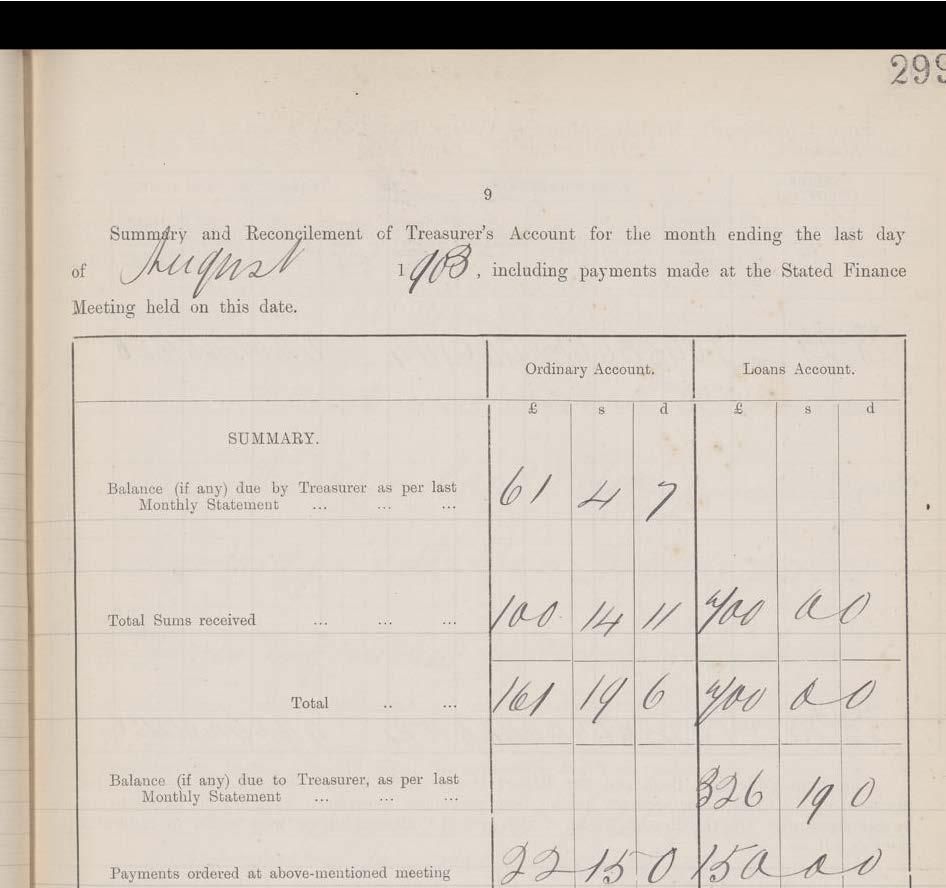 299
9
Summary and Reconcilement of Treasurer's Account for the month ending the last day
of August 1908, including payments made at the Stated Finance
Meeting held on this date.
Ordinary Account. Loans Account.
£ s d £ s d
SUMMARY.
Balance (if any) due by Treasurer as per last
Monthly Statement ... ... ... 61 4 7
Total Sums received ... ... ... 100 14 11 700 0 0
Total .. ... 161 19 6 700 0 0
Balance (if any) due to Treasurer, as per last
Monthly Statement ... ... ... 326 19 0
Payments ordered at above-mentioned meeting 22 15 0 150 0 0